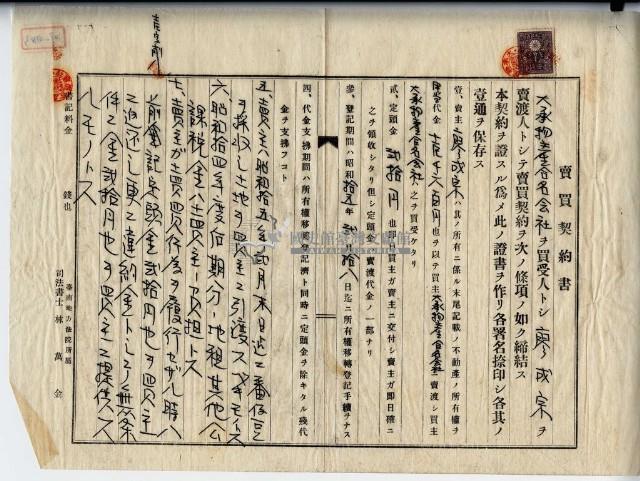 賣買契約書
大承物產合名会社ヲ買受人トシ廖成宗ヲ
賣渡人トシテ賣買契約ヲ次ノ條項ノ如ク締結ス
本契約ヲ證スル爲メ此ノ證書ヲ作リ各署名捺印シ各其ノ
壹通ヲ保存ス
壹、賣主廖成宗ハ其ノ所有ニ係ル末尾記載ノ不動產ノ所有權ヲ
代金 六百円也ヲ以テ買主大承物產合名会社ニ賣渡シ買主
大承物產合名会社ハ之ヲ買受ケタリ
貳、定頭金 貳拾円也卽日買主ガ賣主ニ交付シ賣主ガ卽日確ニ
之ヲ領收シタリ但シ定頭金ハ賣渡代金ノ一部ナリ
參、登記期間ハ昭和拾五年貳 拾八日迄ニ所有權移轉登記手續ヲナス
四、代金支拂期間ハ所有權移轉登記濟ト同時ニ定頭金ヲ除キタル殘代
金ヲ支拂フコト
五、賣主ハ昭和拾五年貳月末日迄ニ二番仔ヲ
採收シ土地ヲ買主ニ引渡スベキモノトス
六、昭和拾四年度后期分ノ地租其他公
課税金ハ賣主ノ負担トス
七、賣主ガ賣買行為ヲ履行セザル時ハ
前金記定頭金貳拾円也ヲ買主
ニ返還シ更ニ違約金トシテ無条
件ニ金貳拾円也ヲ買主ニ提供ス
ルモノトス
書記料金 錢也
臺南地方法院所屬
司法書士 林萬金
國史館臺灣文獻館